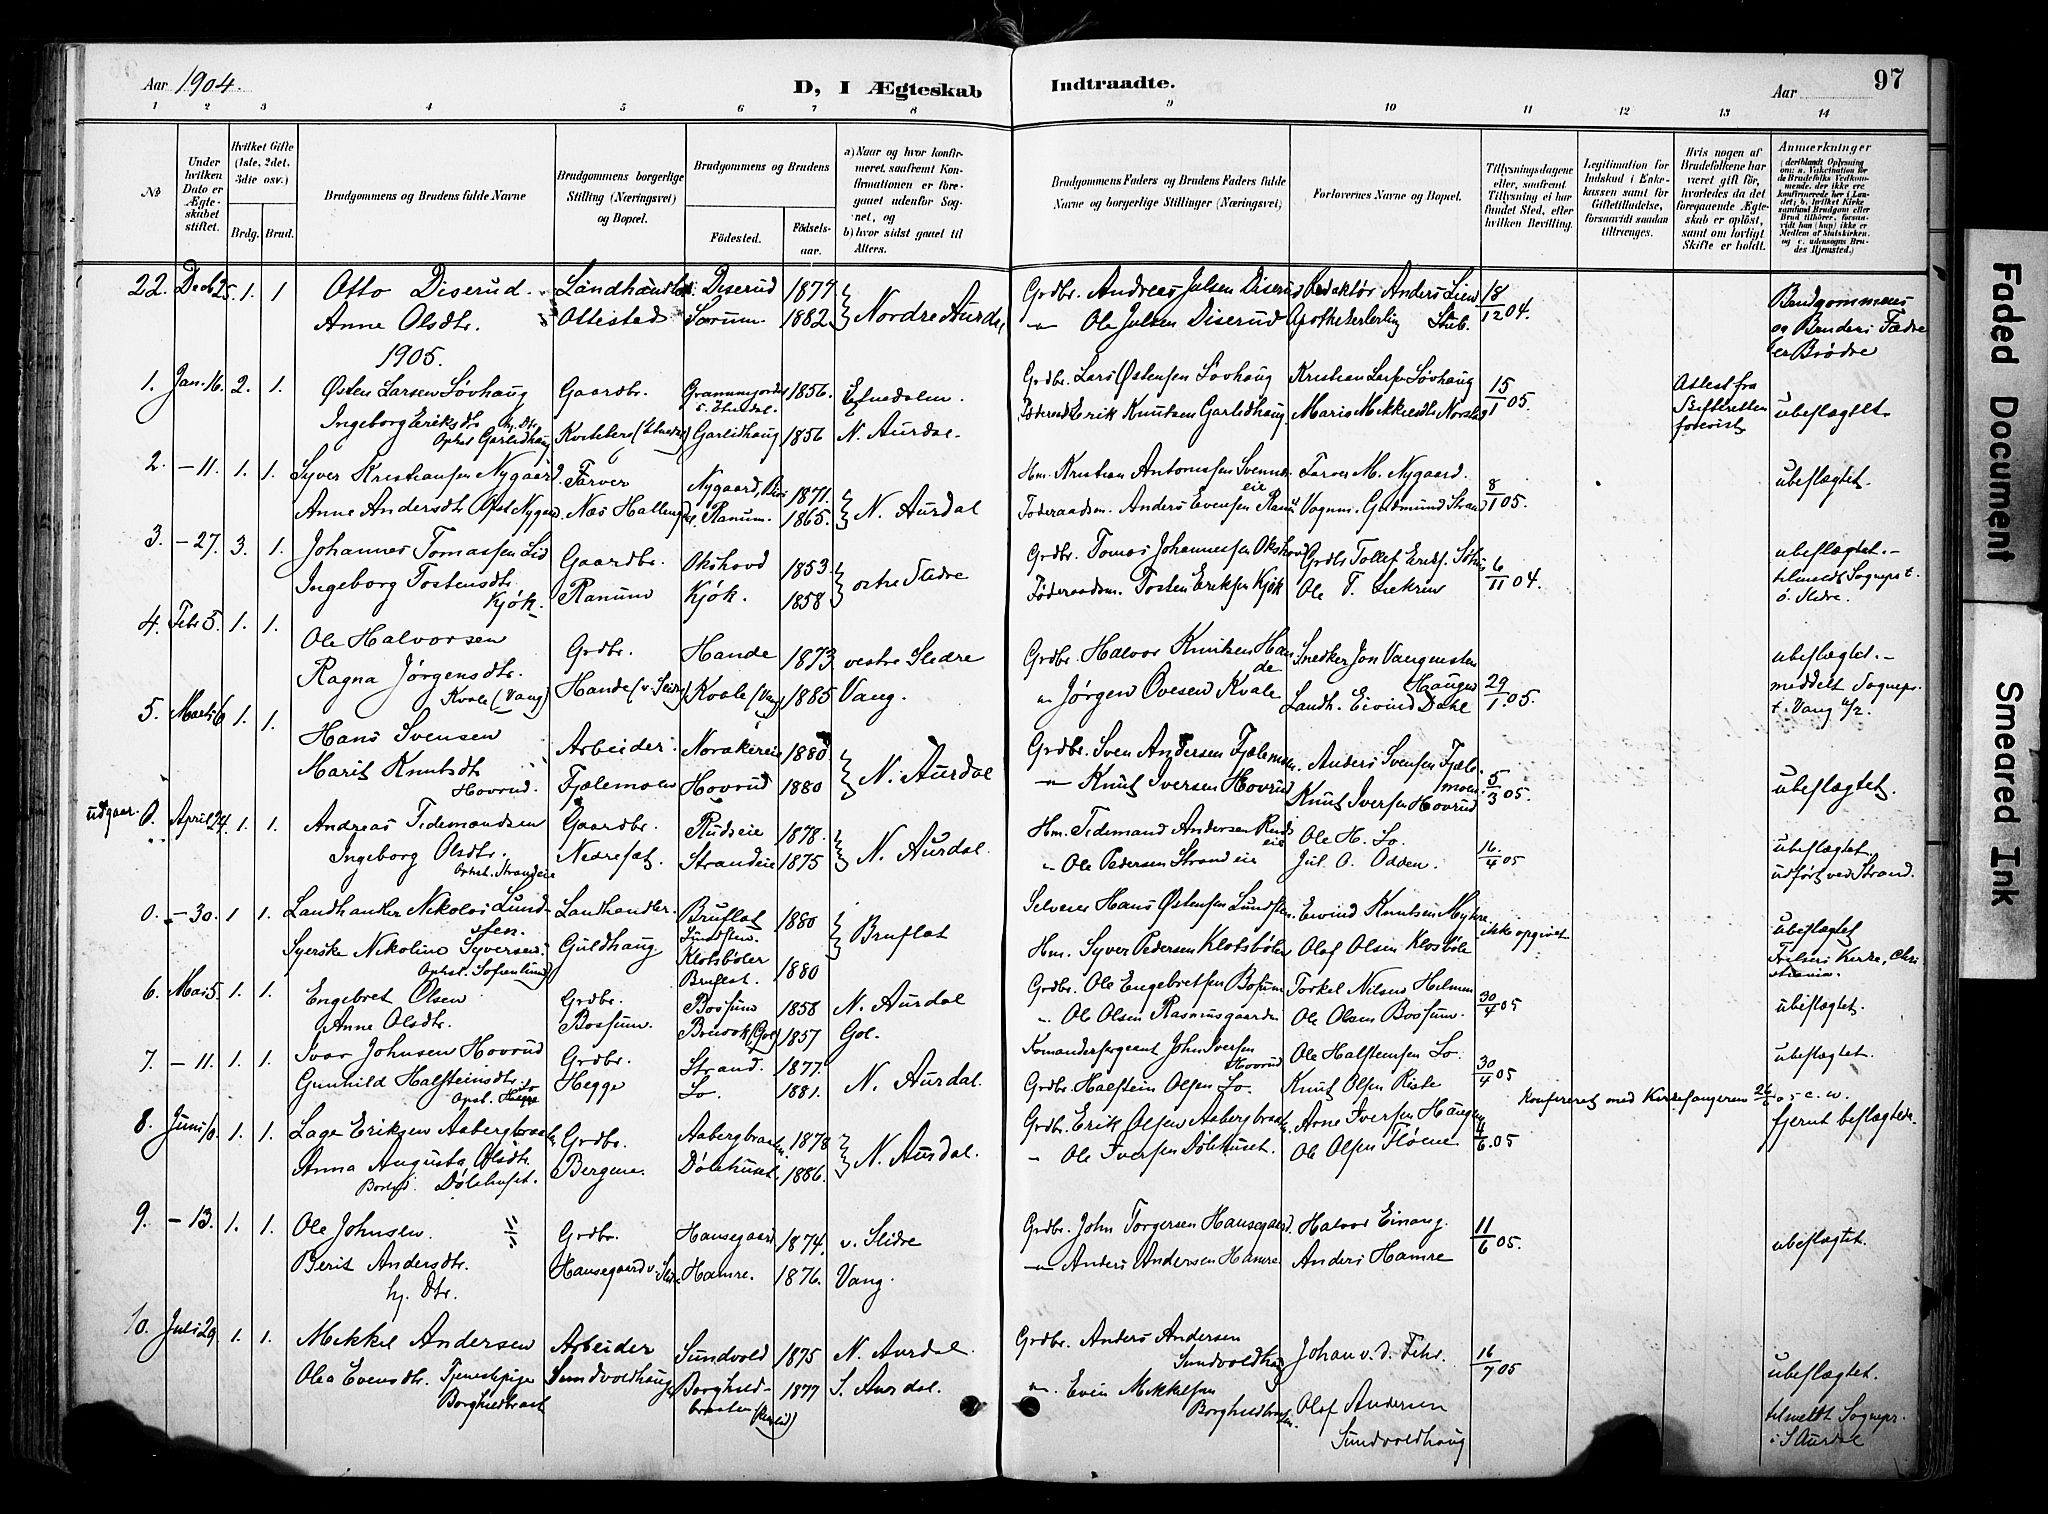 Aar 1904.
D, I Ægteskab Indtraadte.
Aar
97
1 2 3 4 5 6 7 8 9 10 11 12 13 14
No
Under hvilken Dato er Ægteskabet stiftet.
Hvilket Gifte (1ste, 2det, 3die osv.)
Brdg. Brud.
Brudgommens og Brudens fulde Navne
Brudgommens borgerlige Stilling (Næringsvei) og Bopæl.
Brudgommens og Brudens
Fødested. Fødselsaar.
a) Naar og hvor konfirmeret, saafremt Konfirmationen er foregaaet udenfor Sognet, og
b) hvor sidst gaaet til Alters.
Brudgommens Faders og Brudens Faders fulde Navne og borgerlige Stillinger (Næringsvei)
Forlovernes Navne og Bopæl.
Tillysningsdagene eller, saafremt Tillysning ei har fundet Sted, efter hvilken Bevilling.
Legitimation for Indskud i Enkekassen samt for Giftetilladelse, forsaavidt saadan tiltrænges.
Hvis nogen af Brudefolkene har været gift før, hvorledes da det foregaaende Ægteskab er opløst, samt om lovligt Skifte er holdt.
Anmærkninger
22. Decb 25. 1. 1 Otto Diserud. Landhandler. Diserud 1877 Nordre Aurdal Grdbr. Andreas Julsen Diserud Redaktør Anders Lien 18/12 04. Brudgommens
Anne Olsdtr. Ottestad Sørum. 1882 " Ole Julsen Diserud Apothekerlerling Stub. og Brudens Fædre
1905. er Brødre
1. Jan. 16. 2. 1. Østen Larsen Søvhaug Gaardbr. 1856. Etnedalen Grdbr. Lars Østensen Søvhaug Kristian Larsen Søvhaug 15/1 05. Attest fra
Ingeborg Eriksdtr. hj. Dtr. Garlidhaug 1856 N. Aurdal. Erik Knutsen Garlidhaug Skifteretten forevist ubeslægtet
Ophst. Garlidhaug
2. – 11. 1. 1. Syver Kristiansen Nygaard. Farver Nygaard, 1871. N. Aurdal Hm. Kristian Antonissen Svennes eie Farver M. Nygaard. 8/1 05. ubeslægtet.
Anne Andersdtr. Ophst. Nygaard. Næs Hallingd. Ranum. 1865. Føderaadsm. Anders Evensen Ranum Vognm. Gudmund Strand
3. – 27. 3. 1. Johannes Tomassen Lid Gaardbr. Okshovd 1853. østre Slidre Grdbr. Tomas Johannessen Okshovd Grdbr. Tollef Eriks. 6/11 04. ubeslægtet.–
Ingeborg Tostensdtr. Kjøk. Ranum Kjøk. 1858 Føderaadsm. Tosten Eriksen Kjøk Ole T. tilmeldt Sognepr. t. ø. Slidre.
4. Febr 5. 1. 1. Ole Halvorsen Grdbr. Hande 1873 vestre Slidre Grdbr. Halvor Knutsen Hande Snedker Jon Vangensten Haugen 29/1. 05. ubeslægtet.–
Ragna Jørgensdtr. Kvale (Vang) Hande (v. Slidre) Kvale (Vang) 1885 Vang. " Jørgen Ovesen Kvale Landh. Eivind Dahl meddelt Sognepr. t. Vang 6/2.
5. Marts 6 1. 1. Hans Svensen Arbeider. 1880 N. Aurdal Grdbr. Sven Andersen Fjelemoen. Anders Svensen Fjelemoen. 5/3 05. ubeslægtet.
Marit Knutsdtr. Hovrud. Fjelemoen Hovrud 1880 " Knut Iversen Hovrud Knut Iversen Hovrud
udgaar. 0. April 24. 1. 1. Andreas Tidemandsen Gaardbr. Rudseie 1878. N. Aurdal. Hm. Tidemand Andersen Ruds eie Ole H. Lo. 16./4 05 ubeslægtet.
Ingeborg Olsdtr. Ophst. Strandeie Nedresæt. Strandeie 1875 " Ole Pedersen Strandeie Jul. O. Odden. udført ved Strand.
0. – 30. 1 1. Landhanler Nikolai Lundsten. Landhandler. Bruflat Lundsten. 1880 Bruflat Selveier Hans Østensen Lundsten. Eivind Knutsen Myhre ikke opgivet ubeslægtet
Syerske Nikoline Syversen. Ophst. Sofienlund) Guldhaug Klotsbøler Bruflat. 1880 Hm. Syver Pedersen Klotsbølen Olaf Olsen Klosbøle Frelsers Kirke, Christiania.
6. Mai 5. 1. 1. Engebret Olsen Grdbr. Bossum 1858 N. Aurdal Grdbr. Ole Engebretsen Bossum Torkel Nilsen Helmen 30/4 05 ubeslægtet.
Anne Olsdtr. Bossum. (Gol) 1857 Gol. " Ole Olsen Rasmusgaarden Ole Olsen Bossum.
7. – 11. 1. 1. Ivar Johnsen Hovrud Grdbr. Strand. 1877. N. Aurdal. Komandersergeant John Iversen Hovrud Ole Halstensen Lo. 30/4 05 ubeslægtet.
Gunhild Halsteinsdtr. Lo Ophst. Hegge Hegge Lo. 1881. Grdbr. Halstein Olsen Lo. Knut Olsen Riste
Konfereret med Kirkesangeren
8. Juni 10. 1. 1. Lage Eriksen Aabergbraaten Grdbr. Aabergbraaten. 1878 N. Aurdal. Grdbr. Erik Olsen Aabergbraaten. Arne Iversen Haugen 4/6. 05 fjernt beslægtede.
Anna Augusta Olsdtr. Dølehuset. Bergene. Dølehuset. 1886. " Ole Iversen Dølehuset. Ole Olsen Fløene
9. – 13. 1. 1. Ole Johnsen. Grdbr. Hausegaard 1874. v. Slidre Grdbr. John Torgersen Hausegaard. Halvor Einang. 11/6 05. ubeslægtet.
Berit Andersdtr. hj. Dtr. Hausegaard v. Slidre Hamre. 1876. Vang. " Anders Andersen Hamre. Anders Hamre
10. Juli 29 1. 1. Mikkel Andersen Arbeider Sundvold 1875 N. Aurdal. Grdbr. Anders Andersen Sundvoldhaug Johan v. d. Fehr. 16/7 05 ubeslægtet.
Olea Evensdtr. Tjenestepige Borghildbraat Sundvoldhaug Borghildbraaten 1877 S. Aurdal. " Even Mikkelsen Borghildbraaten. Olof Andersen Sundvoldhaug tilmeldt Sognepr. i S Aurdal
Faded Document
Smeared Ink